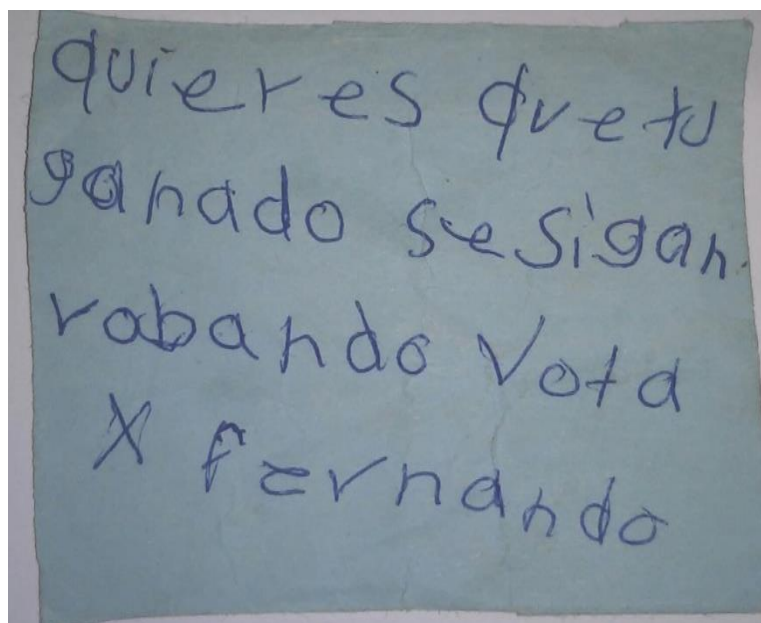 quieres que tu
ganado se sigan
robando Vota
X fernando